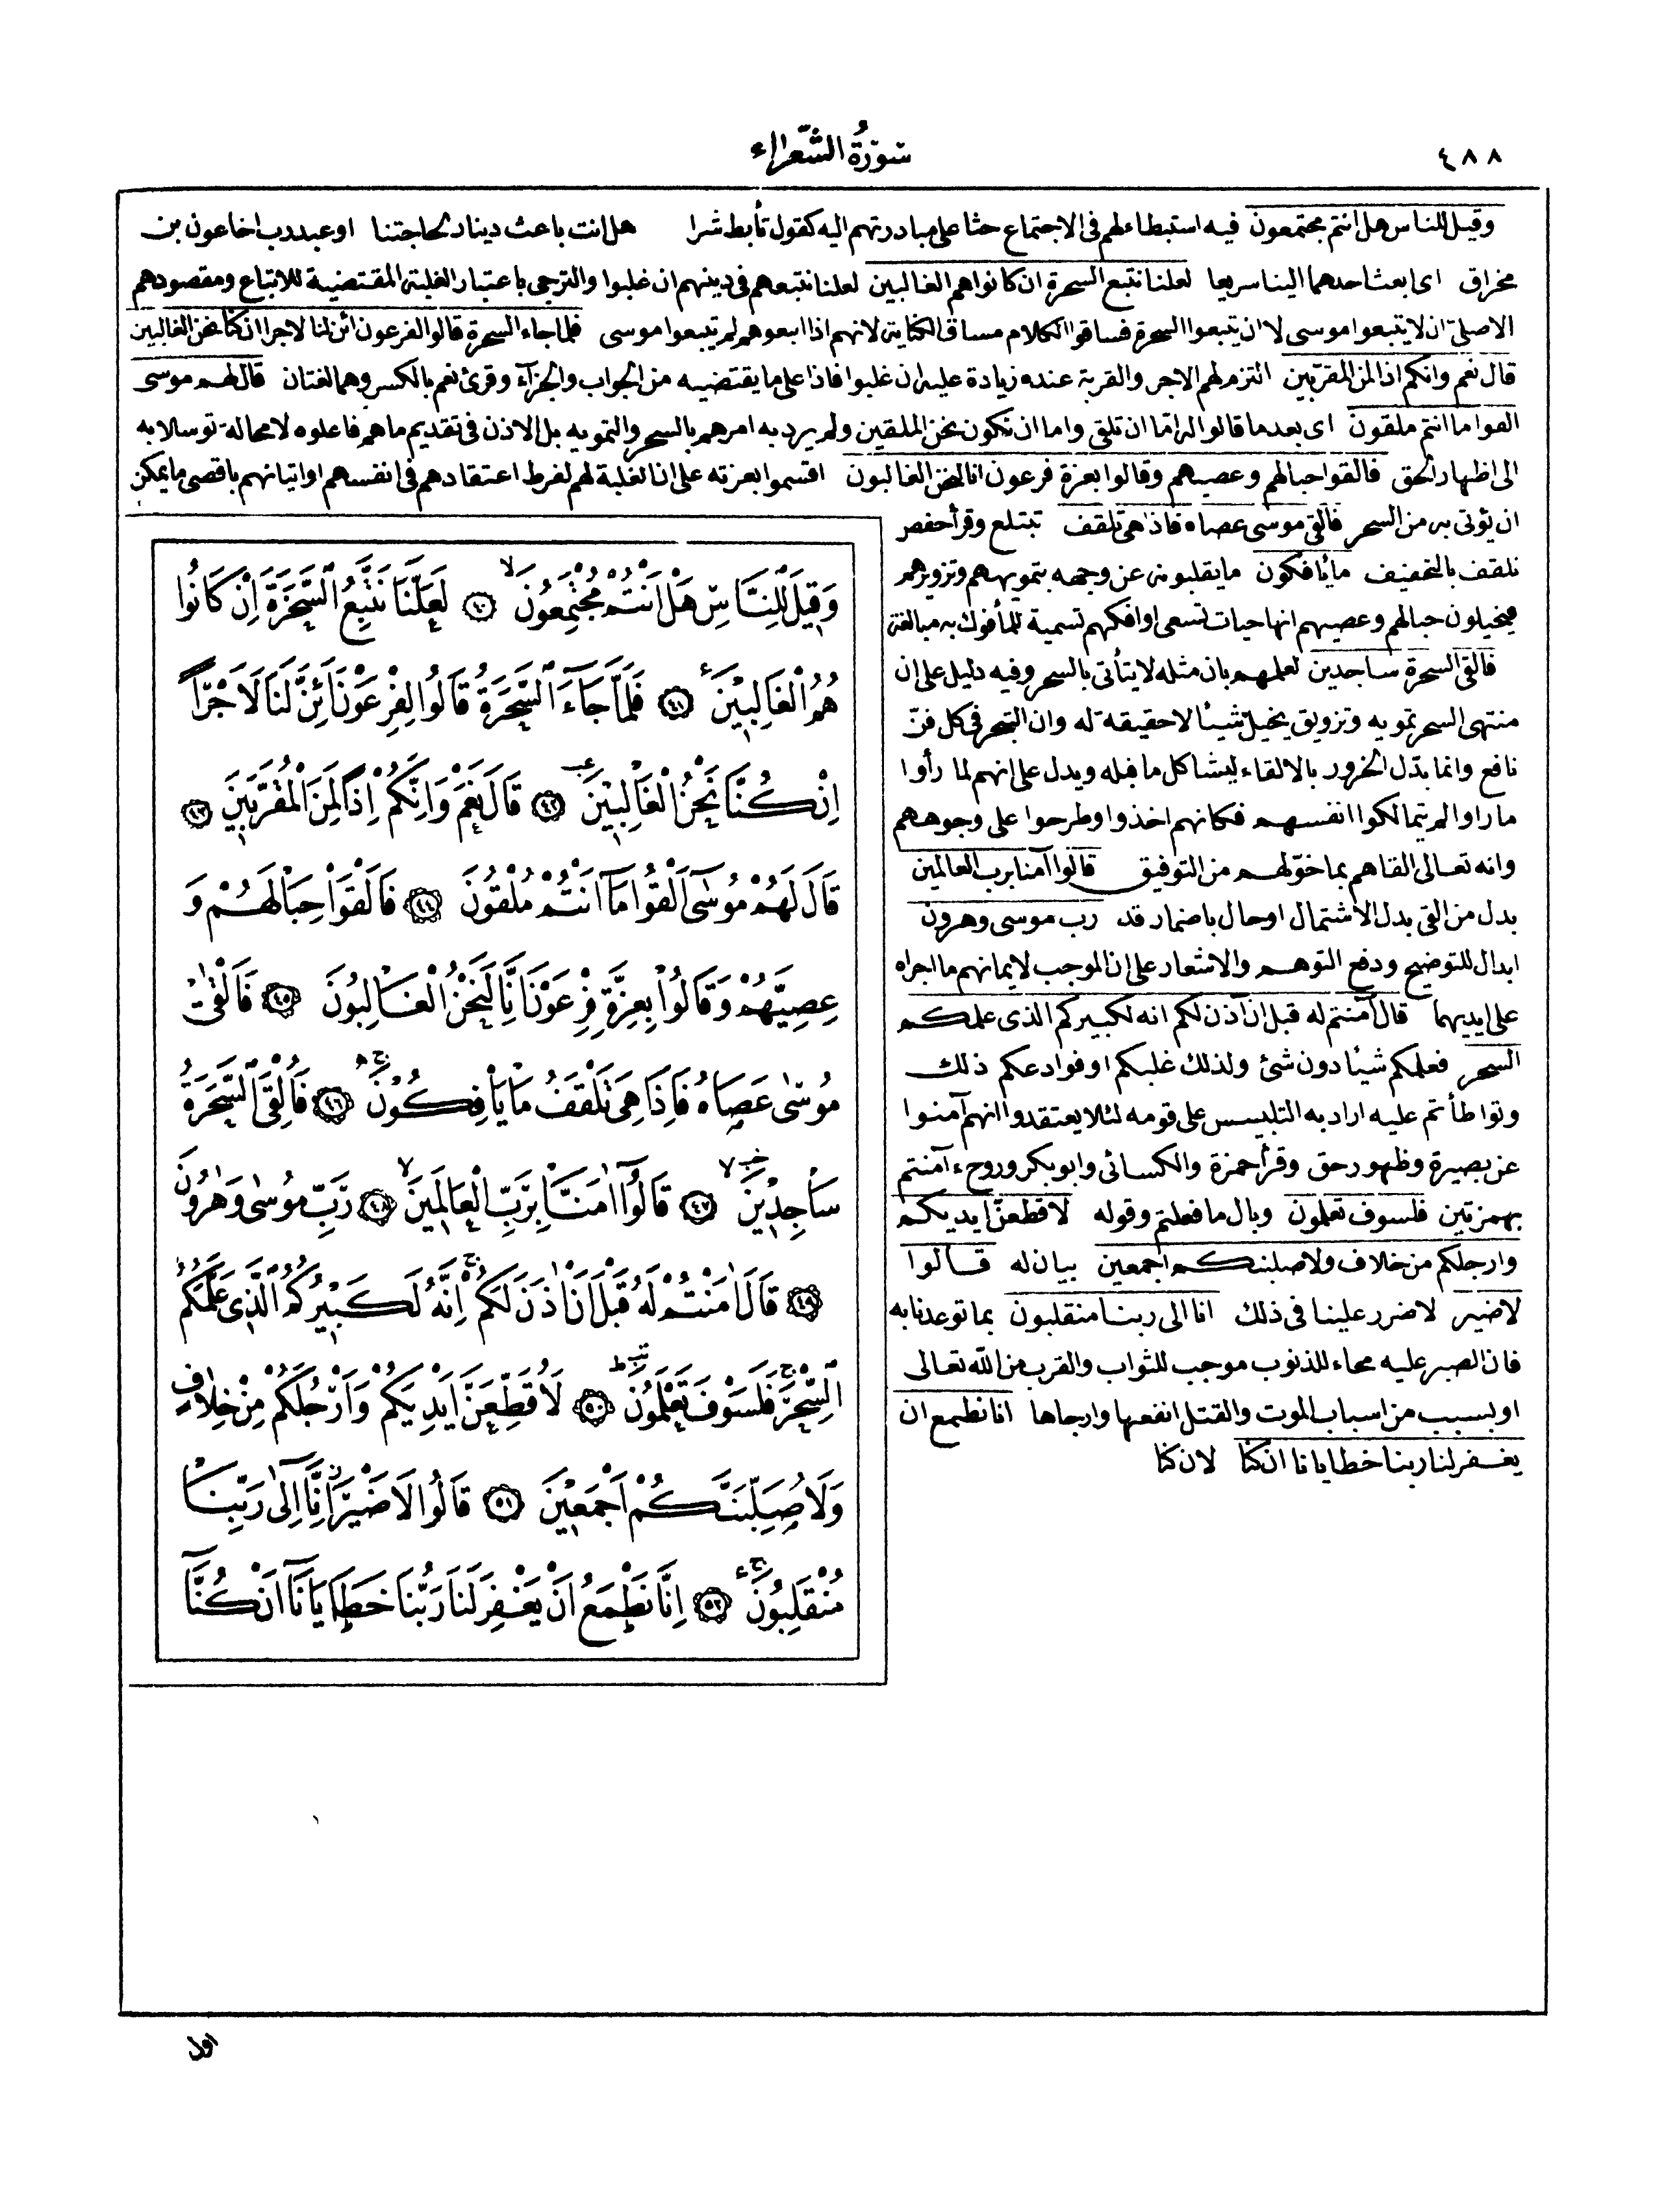 ٤٨٨
سورة الشعراء
وقيل للناس هل انتم مجتمعون فيه استبطاء لهم في الاجتماع حثا على مبادرتهم اليه كقول تأبط شرا هل انت باعث دينار لحاجتنا او عبد رب اخا عون بن
مخراق اى ابعث احدهما الينا سريعا لعلنا نتبع السحرة ان كانوا هم الغالبين لعلنا نتبعهم فى دينهم ان غلبوا والترجى باعتبار الغلبة المقتضية للاتباع ومقصودهم
الاصلى ان لا يتبعوا موسى لا ان يتبعوا السحرة فساقوا الكلام مساق الكناية لانهم اذا اتبعوهم لم يتبعوا موسى فلما جاء السحرة قالوا لفرعون ائن لنا لاجرا ان كنا نحن الغالبين
قال نعم وانكم اذا لمن المقربين التزم لهم الاجر والقربة عنده زيادة عليه ان غلبوا فاذا على ما يقتضيه من الجواب والجزآء وقرئ نعم بالكسر وهما لغتان قال لهم موسى
القوا ما انتم ملقون اى بعد ما قالوا له امّا ان تلقى واما ان نكون نحن الملقين ولم يرد به امرهم بالسحر والتمويه بل الاذن فى تقديم ما هم فاعلوه لا محالة توسلا به
الى اظهار الحق فالقوا حبالهم وعصيهم وقالوا بعزة فرعون انا لنحن الغالبون اقسموا بعزته على ان الغلبة لهم لفرط اعتقادهم فى انفسهم او اتيانهم باقصى ما يمكن
ان يؤتى به من السحر فالقى موسى عصاه فاذا هى تلقف تبتلع وقرأ حفص
تلقف بالتخفيف ما يأفكون ما يقلبونه عن وجهه بتمويههم وتزويرهم
فيخيلون حبالهم وعصيهم انها حيات تسعى او افكهم تسمية للمأفوك به مبالغة
فالقى السحرة ساجدين لعلمهم بان مثله لا يتأتى بالسحر وفيه دليل على ان
منتهى السحر تمويه وتزويق يخيل شيئا لا حقيقة له وان التبحر فى كل فنّ
نافع وانما بدّل الخرور بالالقاء ليشاكل ما قبله ويدل على انهم لما رأوا
ما رأوا لم يتمالكوا انفسهم فكانهم اخذوا وطرحوا على وجوههم
وانه تعالى القاهم بما خوّلهم من التوفيق قالوا آمنا برب العالمين
بدل من القى بدل الاشتمال او حال باضمار قد رب موسى وهرون
ابدال للتوضيح ودفع التوهم والاشعار على ان الموجب لايمانهم ما اجراه
على ايديهما قال آمنتم له قبل ان آذن لكم انه لكبيركم الذى علمكم
السحر فعلمكم شيأ دون شئ ولذلك غلبكم او فوادعكم ذلك
وتواطأتم عليه اراد به التلبيس على قومه لئلا يعتقدوا انهم آمنوا
عن بصيرة وظهور حق وقرأ حمزة والكسائى وابو بكر وروح ءآمنتم
بهمزتين فلسوف تعلمون وبال ما فعلتم وقوله لاقطعنّ ايديكم
وارجلكم من خلاف ولاصلبنكم اجمعين بيان له قالوا
لا ضير لا ضرر علينا فى ذلك انا الى ربنا منقلبون بما توعدنا به
فان الصبر عليه محاء للذنوب موجب للثواب والقرب من الله تعالى
او بسبب من اسباب الموت والقتل انفعها وارجاها انا نطمع ان
يغفر لنا ربنا خطايانا ان كنا لان كنا
وَقِيلَ لِلنَّاسِ هَلْ اَنْتُمْ مُجْتَمِعُونَۙ ٤٠ لَعَلَّنَا نَتَّبِعُ السَّحَرَةَ اِنْ كَانُوا
هُمُ الْغَالِبِينَ ٤١ فَلَمَّا جَاءَ السَّحَرَةُ قَالُوا لِفِرْعَوْنَ اَئِنَّ لَنَا لَاَجْرًا
اِنْ كُنَّا نَحْنُ الْغَالِبِينَ ٤٢ قَالَ نَعَمْ وَاِنَّكُمْ اِذًا لَمِنَ الْمُقَرَّبِينَ ٤٣
قَالَ لَهُمْ مُوسٰى اَلْقُوا مَا اَنْتُمْ مُلْقُونَ ٤٤ فَاَلْقَوْا حِبَالَهُمْ وَ
عِصِيَّهُمْ وَقَالُوا بِعِزَّةِ فِرْعَوْنَ اِنَّا لَنَحْنُ الْغَالِبُونَ ٤٥ فَاَلْقٰى
مُوسٰى عَصَاهُ فَاِذَا هِىَ تَلْقَفُ مَا يَاْفِكُونَ ٤٦ فَاُلْقِىَ السَّحَرَةُ
سَاجِدِينَ ٤٧ قَالُوا اٰمَنَّا بِرَبِّ الْعَالَمِينَ ٤٨ رَبِّ مُوسٰى وَهٰرُونَ
٤٩ قَالَ اٰمَنْتُمْ لَهُ قَبْلَ اَنْ اٰذَنَ لَكُمْ اِنَّهُ لَكَبِيرُكُمُ الَّذِى عَلَّمَكُمُ
السِّحْرَ فَلَسَوْفَ تَعْلَمُونَ ٥٠ لَاُقَطِّعَنَّ اَيْدِيَكُمْ وَاَرْجُلَكُمْ مِنْ خِلَافٍ
وَلَاُصَلِّبَنَّكُمْ اَجْمَعِينَ ٥١ قَالُوا لَا ضَيْرَ اِنَّا اِلٰى رَبِّنَا
مُنْقَلِبُونَ ٥٢ اِنَّا نَطْمَعُ اَنْ يَغْفِرَ لَنَا رَبُّنَا خَطَايَانَا اَنْ كُنَّا
اول